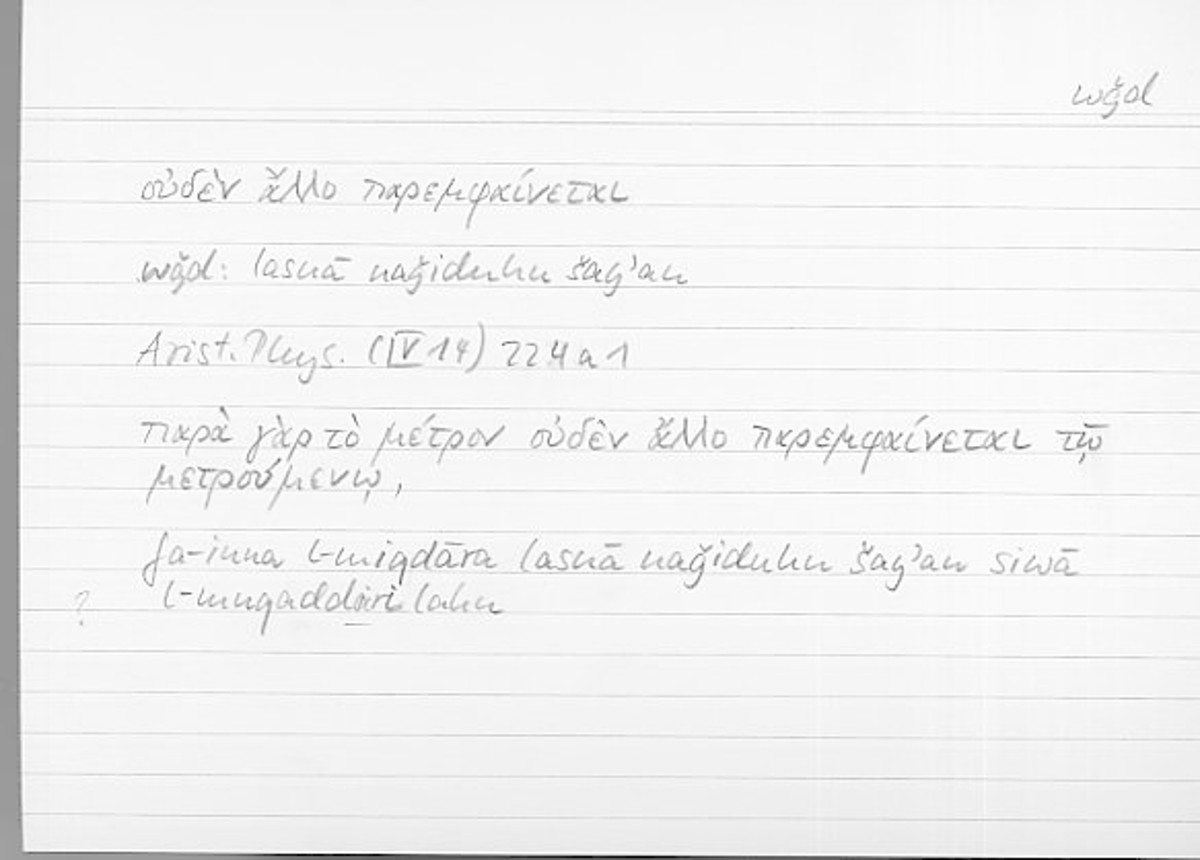 wǧd
οὐδὲν ἄλλο παρεμφαίνεται
wǧd: lasnā naǧiduhu šayʾan
Arist. Phys. (IV 14) 224 a 1
παρὰ γὰρ τὸ μέτρον οὐδὲν ἄλλο παρεμφαίνεται τῷ
μετρούμενῳ,
fa-inna l-miqdāra lasnā naǧiduhu šayʾan siwā
? l-muqaddiri lahu